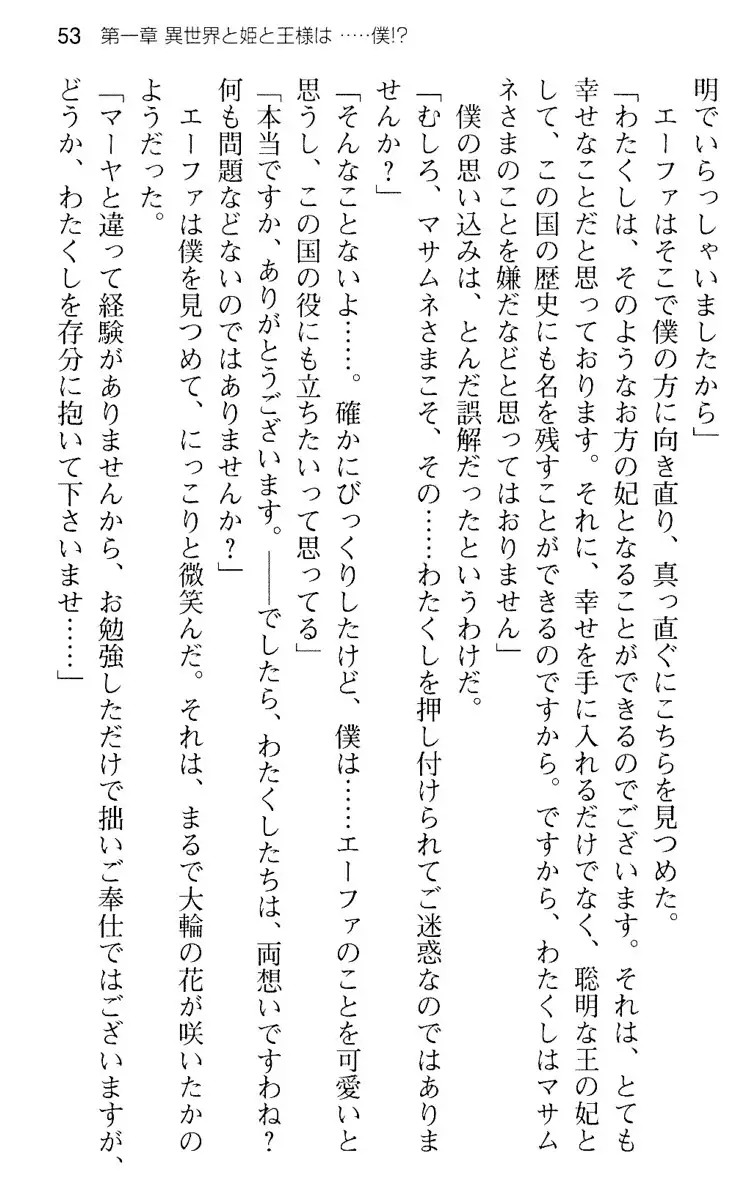 53 第一章 異世界と姫と王様は ……僕!?
明でいらっしゃいましたから」
　エーファはそこで僕の方に向き直り、真っ直ぐにこちらを見つめた。
「わたくしは、そのようなお方の妃となることができるのでございます。それは、とても
幸せなことだと思っております。それに、幸せを手に入れるだけでなく、聡明な王の妃と
して、この国の歴史にも名を残すことができるのですから。ですから、わたくしはマサム
ネさまのことを嫌だなどと思ってはおりません」
　僕の思い込みは、とんだ誤解だったというわけだ。
「むしろ、マサムネさまこそ、その……わたくしを押し付けられてご迷惑なのではありま
せんか？」
「そんなことないよ……。確かにびっくりしたけど、僕は……エーファのことを可愛いと
思うし、この国の役にも立ちたいって思ってる」
「本当ですか、ありがとうございます。――でしたら、わたくしたちは、両想いですわね？
何も問題などないのではありませんか？」
　エーファは僕を見つめて、にっこりと微笑んだ。それは、まるで大輪の花が咲いたかの
ようだった。
「マーヤと違って経験がありませんから、お勉強しただけで拙いご奉仕ではございますが、
どうか、わたくしを存分に抱いて下さいませ……」